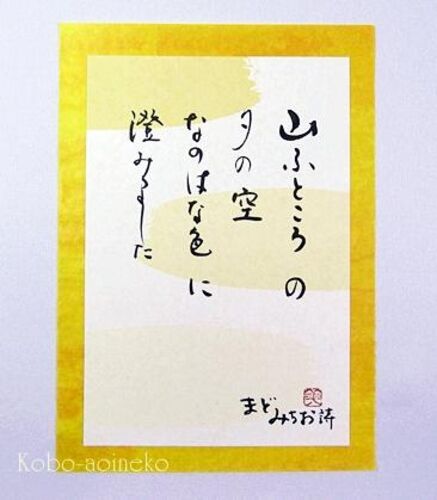 山ふところの
夕の空
なのはな色に
澄みました
まど
みちお詩
Kobo-aoineko